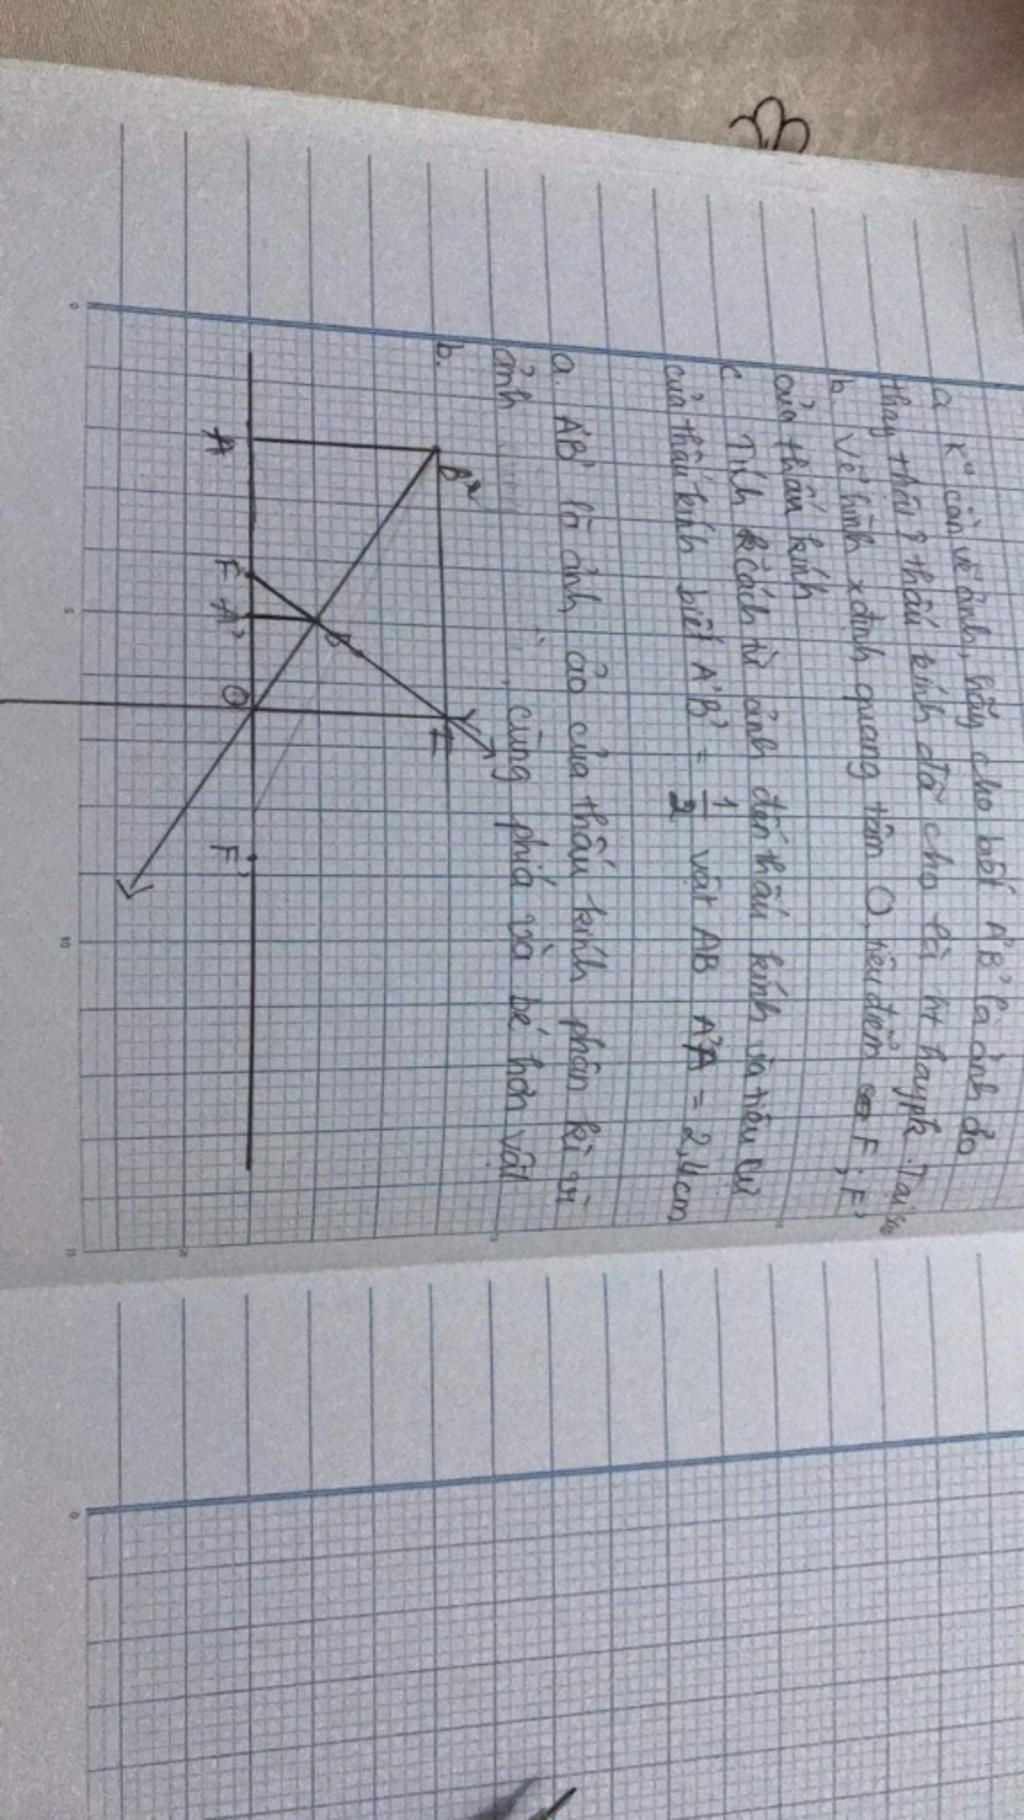 a K° cần vẽ ảnh, hãy cho biết A'B' là ảnh ảo
hay thật? thấu kính đã cho là ht hay pk. Tại sao
b Vẽ hình xđịnh quang tâm O, tiêu điểm F; F'
của thấu kính
c Tính k/cách từ ảnh đến thấu kính và tiêu cự
của thấu kính biết A'B' = 1/2 vật AB A'A = 2,4cm
a. A'B' là ảnh ảo của thấu kính phân kì vì
ảnh cùng phía và bé hơn vật
b.
B
I
B'
A F A' O F'
0 5 10 15
0